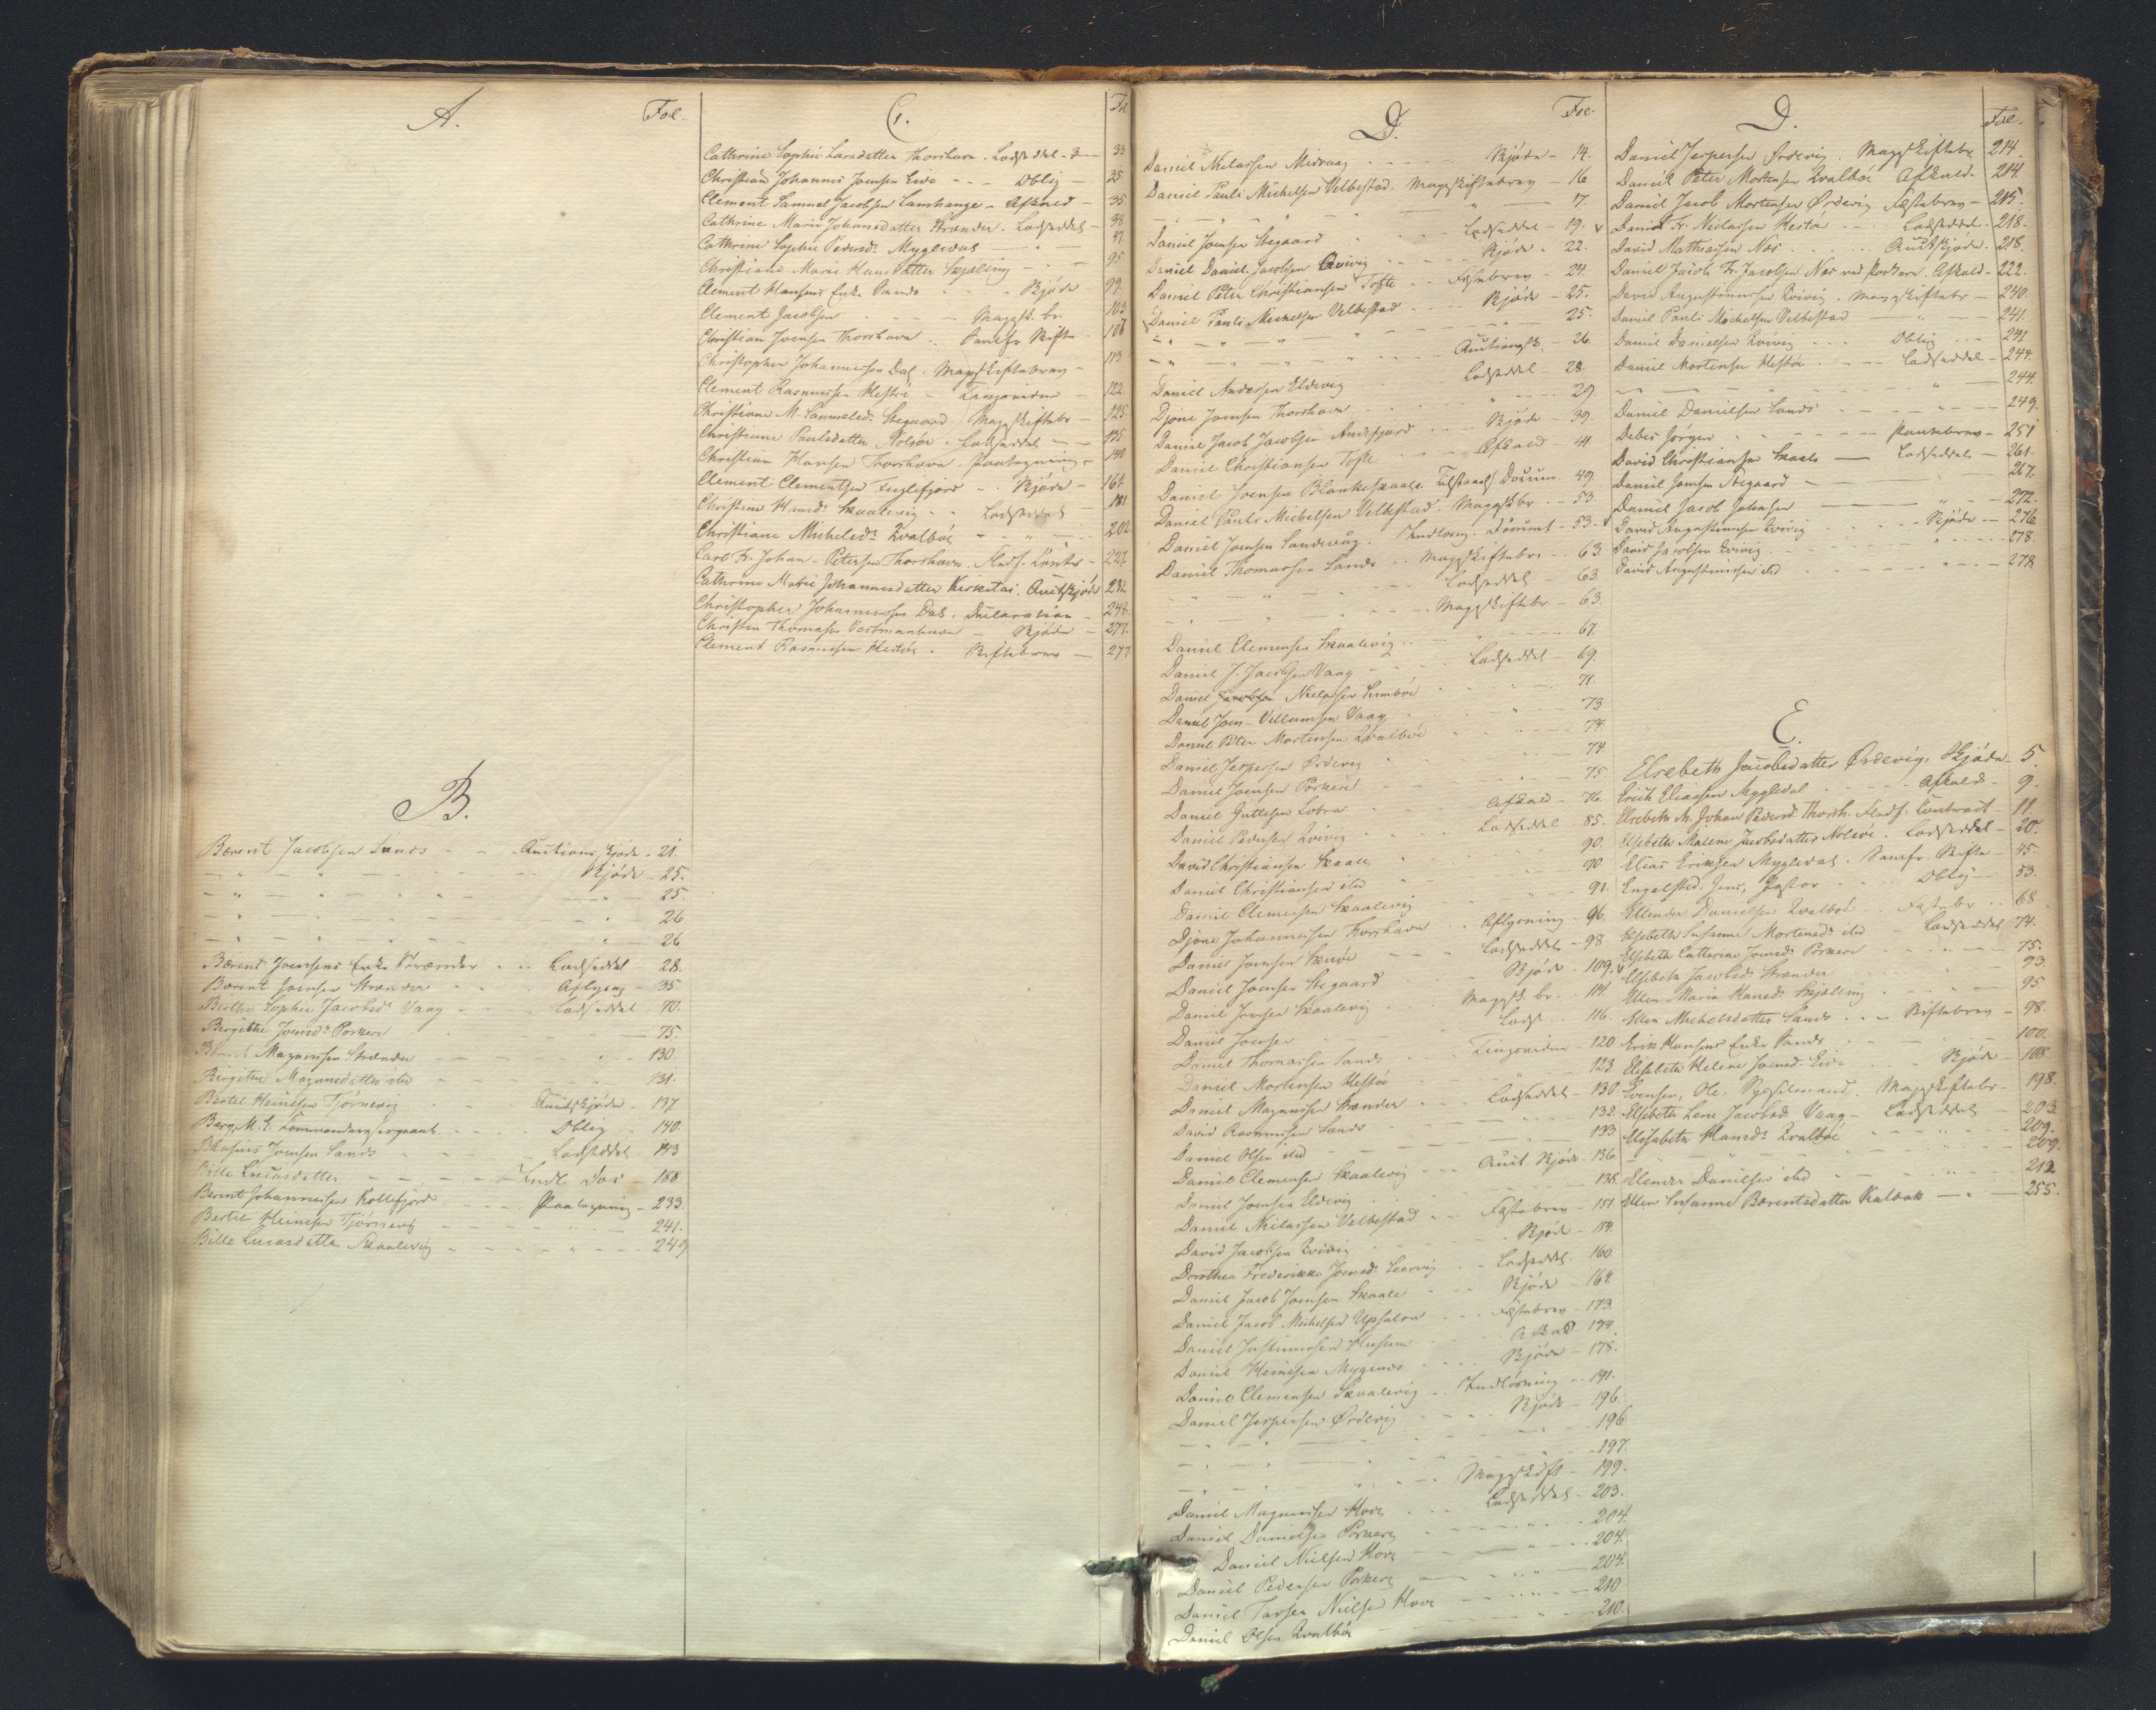 A. Fol.
B.
Berent Jacobsen Sands - - Auctions skjøde - 21.
- " - " - " - Skjøde - 25.
- " - " - " - " - 25.
- " - " - " - " - 26
- " - " - " - " - 26
Berent Joensens Enke Strænder - - Ladseddel - 28.
Berent Joensen Strænder - - Aflysng - 35
Birthe Sophie Jacobsd. Vaag - - Ladseddel - 70.
Birgithe Joensd. Porkere - - 75.
Berent Magnussen Strænder - - " - 130.
Birgithe Magnusdatter ibd - - " - 131.
Bertel Heinesen Tjørnevig - - Auctskjøde - 137
Berg, M. E. Commandersergeant - Oblig - 140.
Blasius Joensen Sands - - Ladseddel - 143
Bille Lucasdatter - - Indl. Doc - 188
Berent Johannesen Kollefjord - - Paategning - 233.
Bertel Heinesen Tjørnevig - - " - 241.
Bille Lucasdatter Skaalevig - - " - 249
C. Fol
Cathrine Sophie Larsdatter Thorshavn. Ladseddel - 33
Christian Johannes Joensen Eide - - Oblig - 35
Clement Samuel Jacobsen Lamhauge - Afkald - 35
Cathrine Marie Johansdatter Strænder. Ladseddel - 38
Cathrine Sophie Pedersd. Mygledal - " - 47
Christiane Marie Hansdatter Skjæling - - 95
Clement Hansens Enke Sands - - Skjøde - 99.
Clement Jacobsen - - Magsk. br. 103
Christian Joensen Thorshavn .. Samfr. Skifte - 108
Christopher Johannesen Dal, Mageskiftebrev - 113
Clement Rasmussen Hestøe - Tingsvidne - 122
Christiane M. Samuelsd. Stegaard. Mageskiftebr - 125
Christiane Poulsdatter Nolsøe - Ladseddel - 135
Christian Hansen Thorshavn. Paategning - 140
Clement Clementsen Fuglefjord - - Skjøde - 164
Christine Hansd. Skaalevig - - Ladseddel - 181
Christiane Michelsd. Qvalbøe - " - 202
Carl Fr. Johan - Petersen Thorshavn. Afst. Contr - 227
Cathrine Marie Johannesdatter Kirketai. Auctskjøde 232
Christopher Johannesen Dal, Declaration - 248.
Christen Thomasen Vestmanhavn - Skjøde - 277.
Clement Rasmussen Hestøe - Skiftebrev - 277
D. Fol.
Daniel Niclassen Midvaag - - Skjøde - 14.
Daniel Pauli Michelsen Velbestad. Mageskiftebrev - 16
- " - " - " - " - 17.
Daniel Joensen Stegaard - - Ladseddel - 19.
Daniel Daniel Jacobsen Qvivig - - Skjøde - 22.
Daniel Peter Christiansen Tofte - - Fæstebrev - 24.
Daniel Pauli Michelsen Velbestad - - Skjøde - 25.
- " - " - " - " - 25.
- " - " - " - Auctionssk. - 26.
Daniel Andersen Eldevig - Ladseddel - 28.
Djone Joensen Thorshavn - - " - 29
Daniel Jacob Jacobsen Andefjord - - Skjøde - 39.
Daniel Christiansen Tofte - - Afkald - 41
Daniel Joensen Blankeskaale. Tilstaaels. Docum - 49.
Daniel Pauli Michelsen Velbestad. Magsksbr - - 53
Daniel Joensen Sandevaag. Indløsng. Docum. - 53.
Daniel Thomassen Sands .. Mageskiftebr. - 63
- " - " - Ladseddel - 63.
- " - " - Mageskiftebr - 63.
Daniel Clemensen Skaalevig - - " - 67.
Daniel J. Jacobsen Vaag - - Ladseddel - 69.
Daniel Niclassen Sumbøe - " - 71.
Daniel Joen - Villumsen Vaag - " - 73
Daniel Peter Mortensen Qvalbøe - " - 74
Daniel Jespersen Ørdevig - - 74.
Daniel Joensen Porkere - - 75
Daniel Guttesen Lobra - Afkald - 76.
Daniel Pedersen Qvivig - Ladseddel 85.
David Christiansen Skaale - - 90.
Daniel Christiansen ibd - - 90
Daniel Clemensen Skaalevig - - 91.
Djone Johannesen Thorshavn - Aflysning - 96.
Daniel Joensen Skuøe - - Ladseddel - 98
Daniel Joensen Stegaard - Skjøde - 109.
Daniel Joensen Skaalevig - Magsk. br. - 114.
Daniel Joensen - - Lads - 116.
Daniel Thomassen Sands - - Tingsvidne - 120
Daniel Mortensen Hestøe - - " - 123
Daniel Magnussen Strænder - - Ladseddel - 130
David Rasmussen Sands - - " - 132.
Daniel Olsen ibd - - " - 133.
Daniel Clemensen Skaalevig - - Auct. Skjøde - 136.
Daniel Joensen Eldevig - - 138.
Daniel Niclassen Velbestad - - Fæstebrev - 151
David Jacobsen Qvivig - - Skjøde - 154
Dorothea Frederikke Joensd. Leervig - - Ladseddel 160.
Daniel Jacob Joensen Skaale - - Skjøde - 162.
Daniel Jacob Michelsen Upsalen - - Fæstebrev - 173.
Daniel Justinussen Husum - - Afkald - 174.
Daniel Heinesen Mygenes - - Skjøde - 178.
Daniel Clemensen Skaalevig .. Indløsning - 191.
Daniel Jespersen Ørdevig - - Skjøde - 196.
- " - " - " - " - 196
- " - " - " - " - 197.
- " - " - " - Mageskift - 199.
Daniel Magnussen Hove - Ladseddel - 203.
Daniel Danielsen Porkere - - " - 204.
Daniel Nielsen Hove - - " - 204.
Daniel Pedersen Porkere - - " - 204.
Daniel Tarsen Nielsen Hove - - " - 210
Daniel Olsen Qvalbøe - " - 210.
D. Fol.
Daniel Jespersen Ørdevig. Mageskiftebr. 214.
Daniel Peter Mortensen Qvalbøe Afkald - 214.
Daniel Jacob Mortensen Ørdevig Fæstebrev - 215.
Daniel Fr. Niclassen Hestøe - - Ladseddel - 218.
David Mathiasen Næs - - Auctskjøde - 218.
Daniel Jacob Fr. Jacobsen Næs ved Porkere. Afkald - 222.
David Augustinussen Qvivig. Mageskiftebr - 240.
Daniel Pauli Michelsen Velbestad - " - 241.
Daniel Danielsen Qvivig - - Oblig - 241
Daniel Mortensen Hestøe - - Ladseddel - 244.
- " - " - " - 244.
Daniel Danielsen Sands - - " - 249.
Debes Jørgen - - Pantebrev - 251
David Christiansen Skaale - Ladseddel - 261.
Daniel Joensen Stegaard - - 267.
Daniel Jacob Johansen - " - 272.
David Augustinussen Qvivig - - Skjøde - 276
David Jacobsen Qvivig - - " - 278.
David Augustinussen ibd - - " - 278.
E.
Elsebeth Jacobsdatter Ørdevig, Skjøde - 5.
Erich Eliassen Mygledal - - Afkald - 9.
Elsebeth M. Johan Pedersd. Thorsh. Afst. Contract - 11
Elsebeth Malene Jacobsdatter Nolsøe. Ladseddel - 20.
Elias Ericksen Mygledal. Samfr. Skifte - 45.
Engelsted, Jens, Pastor - - Oblig - 53.
Ellendr Danielsen Qvalbøe - Fæstebr - - 68
Elsebeth Susanne Mortensd. ibd - Ladseddel 74.
Elsebeth Cathrine Joensd. Porkere - - 75.
Elsebeth Jacobsd. Strænder - - 93
Ellen Maria Hansd. Skjæling - - 95.
Ellen Michelsdatter Sands - - Skiftebrev - 98.
Erik Hansens Enke Sands - - 100.
Elsebeth Helene Joensd. Eide - Skjøde - 108
Evensen, Ole, Sysselmand. Mageskiftebr - 198.
Elsebeth Lene Jacobsd. Vaag - Ladseddel - 203.
Elisabeth Hansd. Qvalbøe - - 209.
- " - " - " - 209.
Elender Danielsen ibd - - " - 212
Ellen Susanne Berentsdatter Kalbak - " - 255.